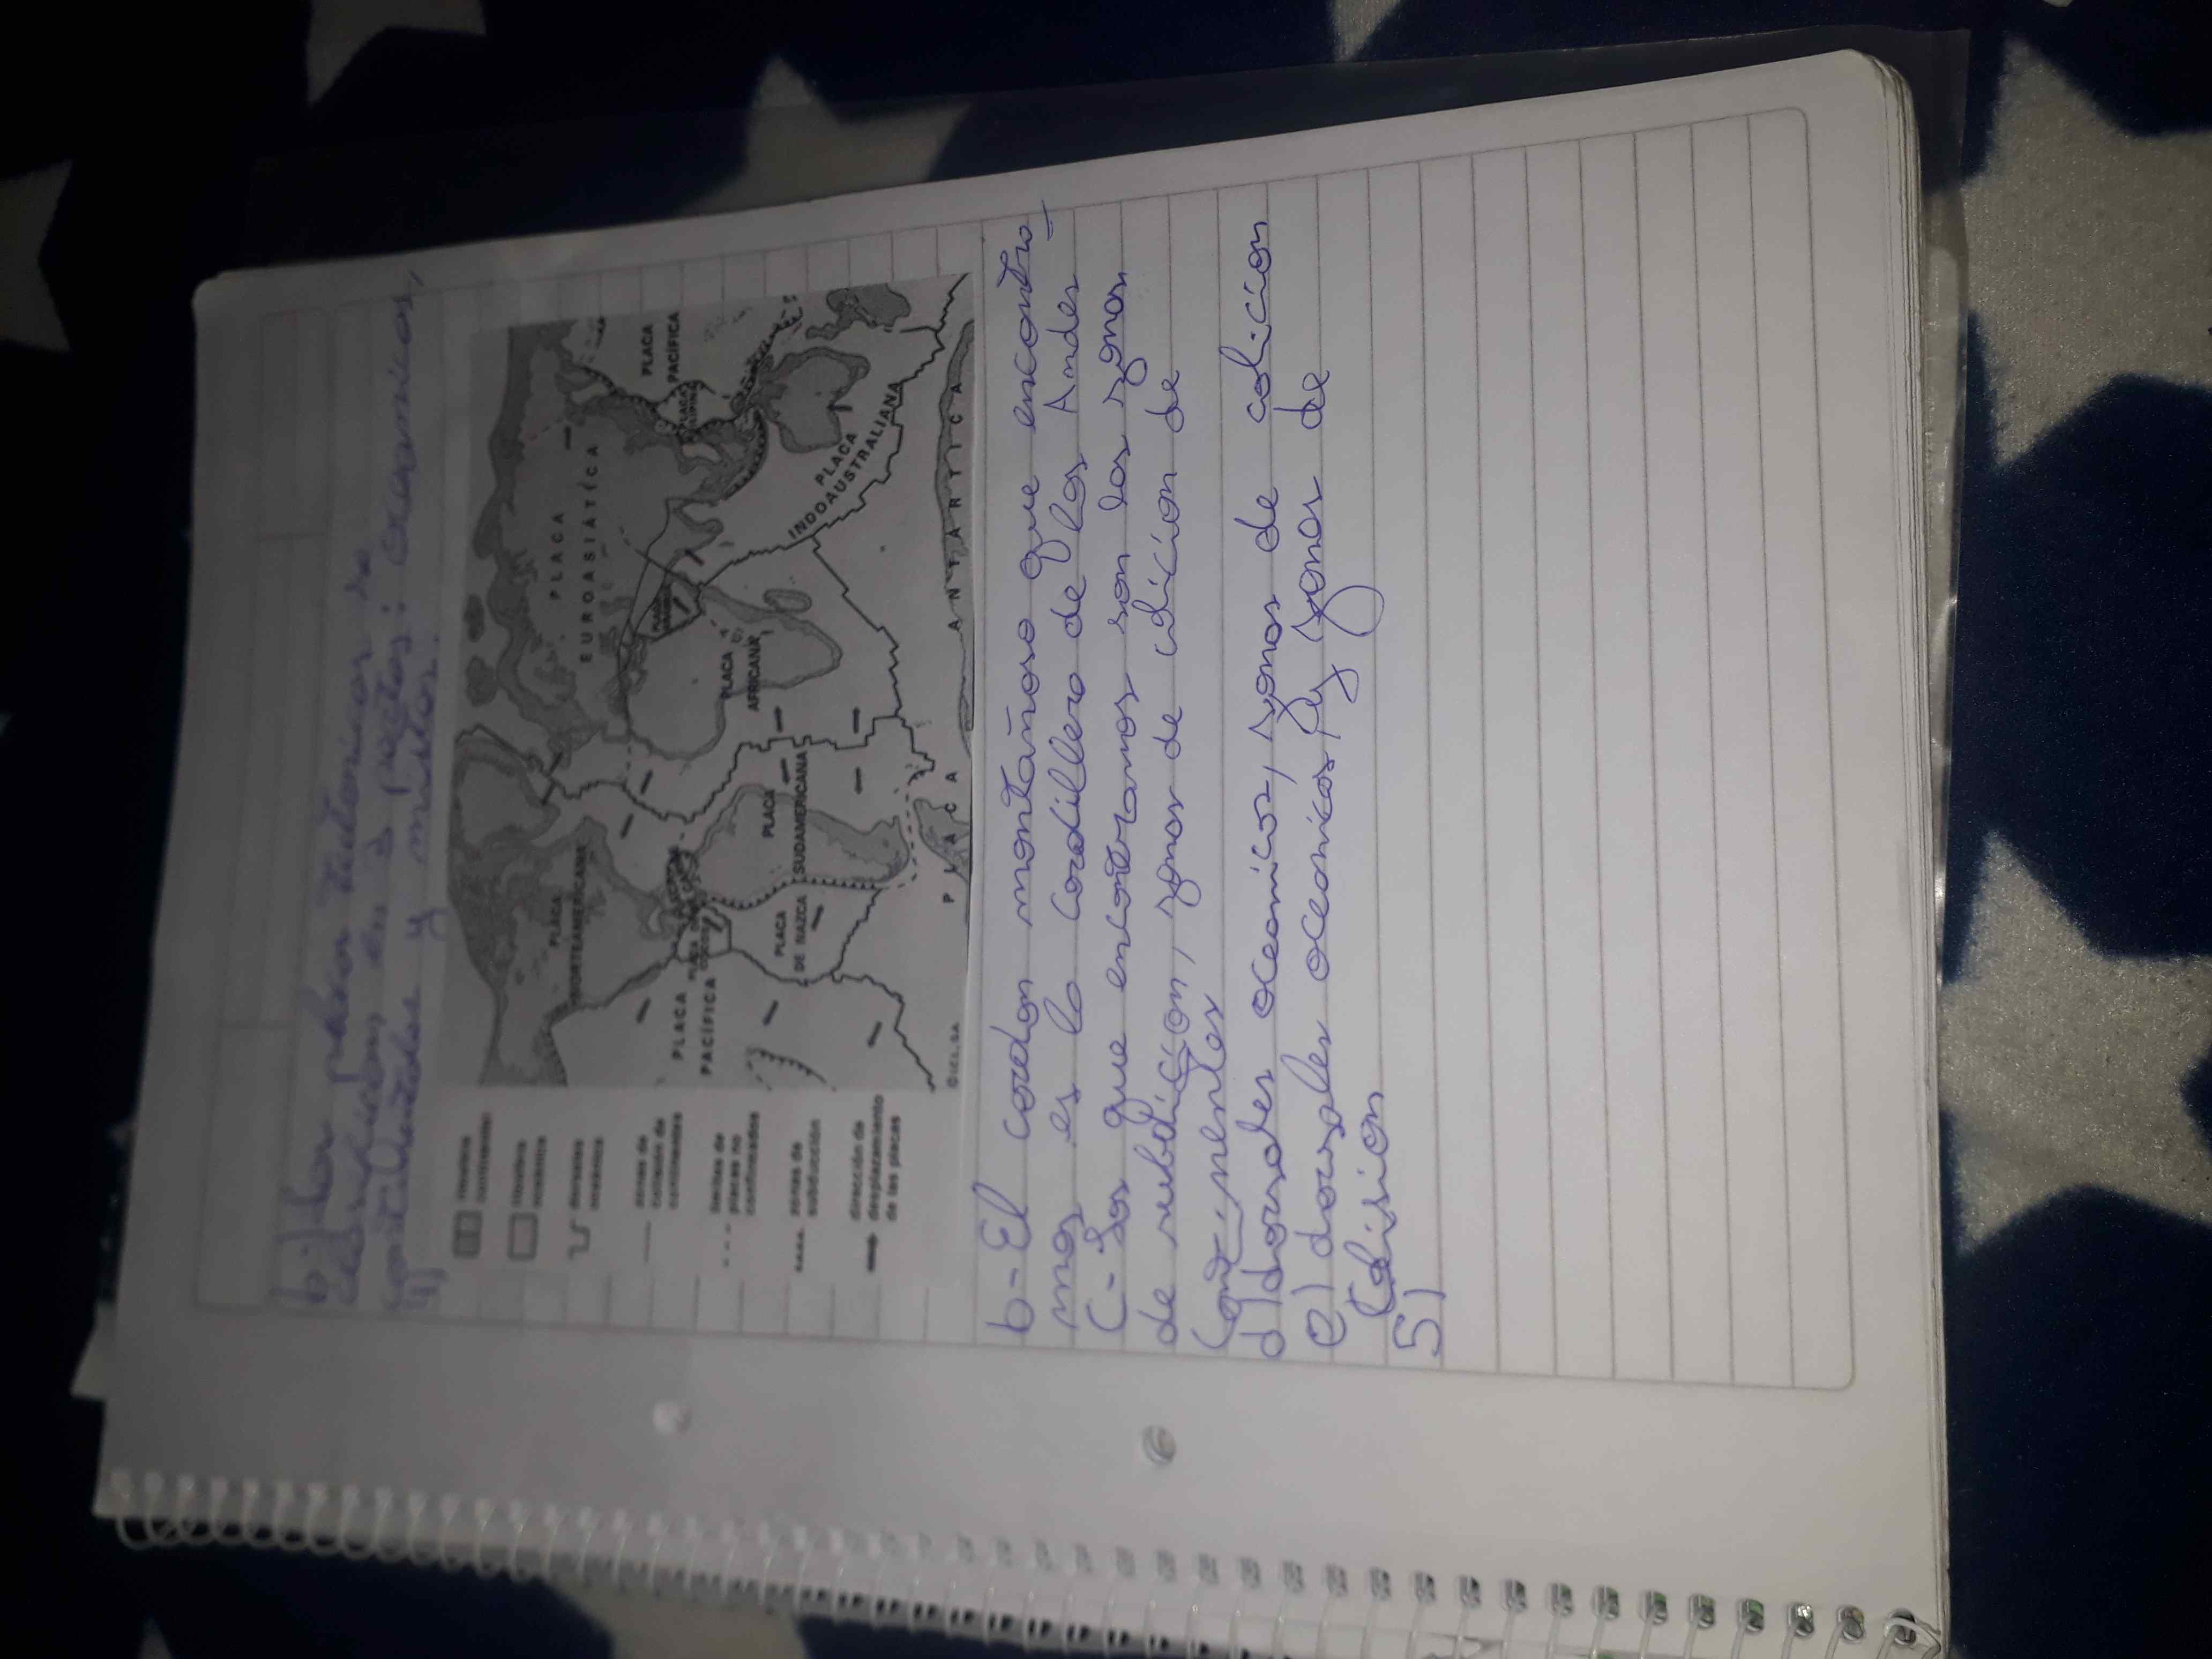 b-) las placas tectonicas se
clasifican en 3 partes: oceanicas,
continentales y mixtas.
4)
relieve
continental
relieve
oceánico
dorsales
oceánicas
zonas de
colisión de
continentes
límites de
placas no
confirmados
zonas de
subducción
dirección de
desplazamiento
de las placas
PLACA
NORTEAMERICANA
PLACA
EUROASIÁTICA
PLACA
PACÍFICA
PLACA
FILIPINA
PLACA
PACÍFICA
PLACA DE
COCOS
PLACA
PLACA
DE NAZCA
PLACA
SUDAMERICANA
PLACA
AFRICANA
PLACA
INDOAUSTRALIANA
PLACA ANTÁRTICA
b-El cordon montañoso que encontra-
mos es la cordillera de los Andes
C-Los que encontramos son las zonas
de subdicion, zonas de colicion de
continentes
d) dorsales oceanicas, zonas de colicion
e) dorsales oceanicas y zonas de
Colision
5)